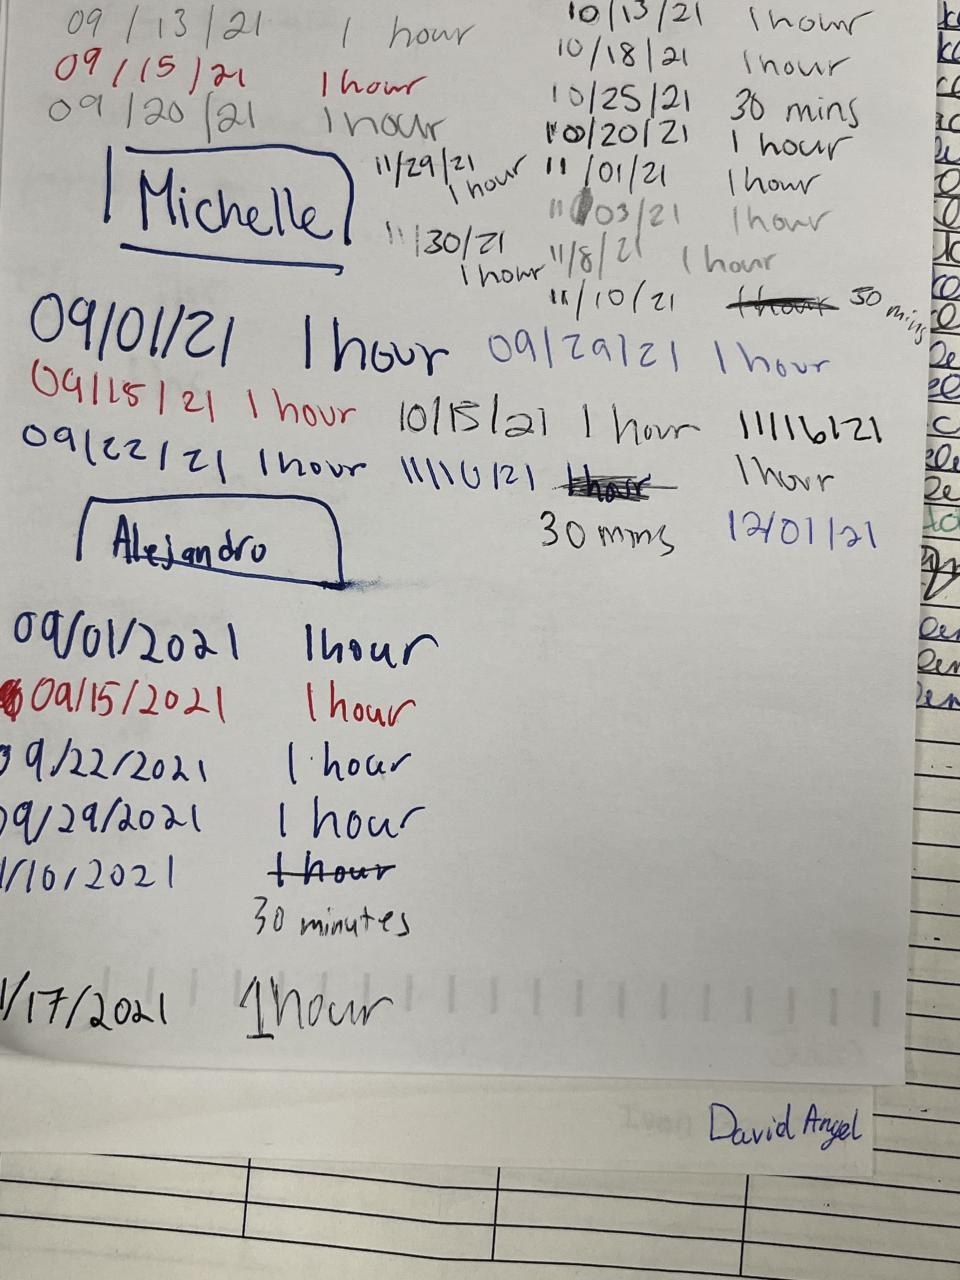 09/13/21 1 hour
09/15/21 1 hour
09/20/21 1 hour
10/13/21 1 hour
10/18/21 1 hour
10/25/21 30 mins
10/20/21 1 hour
11/01/21 1 hour
11/03/21 1 hour
11/8/21 1 hour
11/10/21 1 hour 30 mins
11/29/21
1 hour
11/30/21
1 hour
Michelle
09/01/21 1 hour 09/29/21 1 hour
09/15/21 1 hour 10/15/21 1 hour 11/16/21
1 hour
09/22/21 1 hour 11/10/21 1 hour
30 mins 12/01/21
Alejandro
09/01/2021 1 hour
09/15/2021 1 hour
09/22/2021 1 hour
09/29/2021 1 hour
1/10/2021 1 hour
30 minutes
1/17/2021 1 hour
David Angel